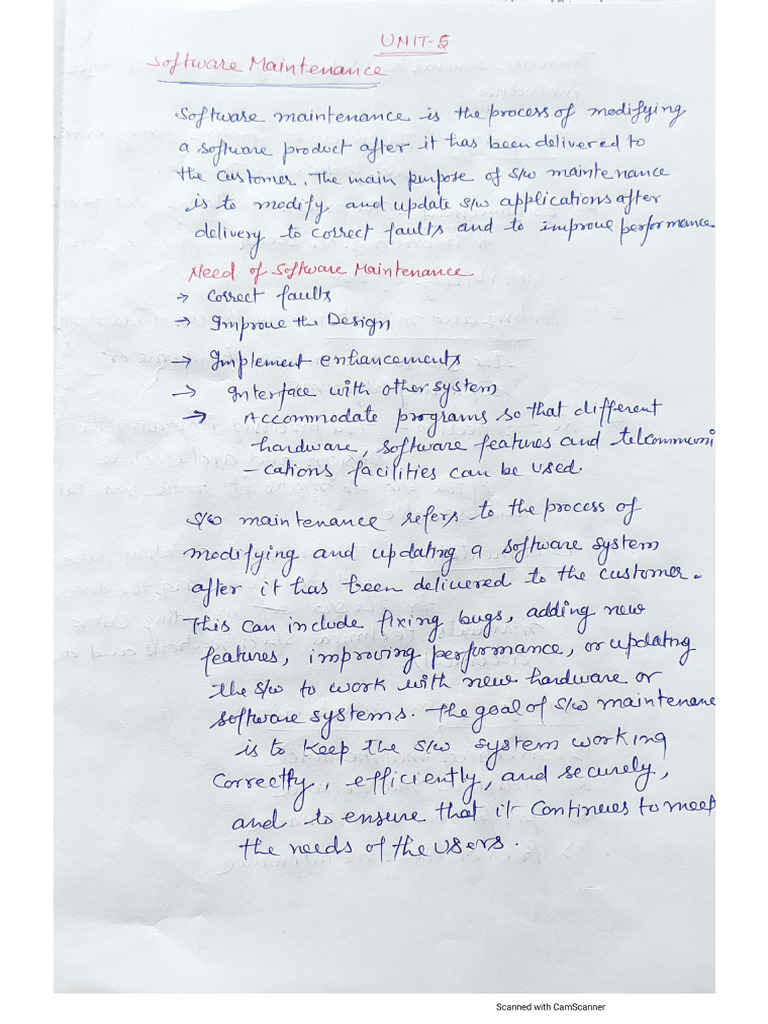 UNIT-5
Software Maintenance
Software maintenance is the process of modifying
a software product after it has been delivered to
the customer. The main purpose of s/w maintenance
is to modify and update s/w applications after
delivery to correct faults and to improve performance.
Need of Software Maintenance
→ Correct faults
→ Improve the Design
→ Implement enhancements
→ Interface with other system
→ Accommodate programs so that different
hardware, software features and telecommuni
-cations facilities can be used.
S/w maintenance refers to the process of
modifying and updating a software system
after it has been delivered to the customer.
This can include fixing bugs, adding new
features, improving performance, or updating
the s/w to work with new hardware or
software systems. The goal of s/w maintenance
is to keep the s/w system working
correctly, efficiently, and securely,
and to ensure that it continues to meet
the needs of the users.
Scanned with CamScanner